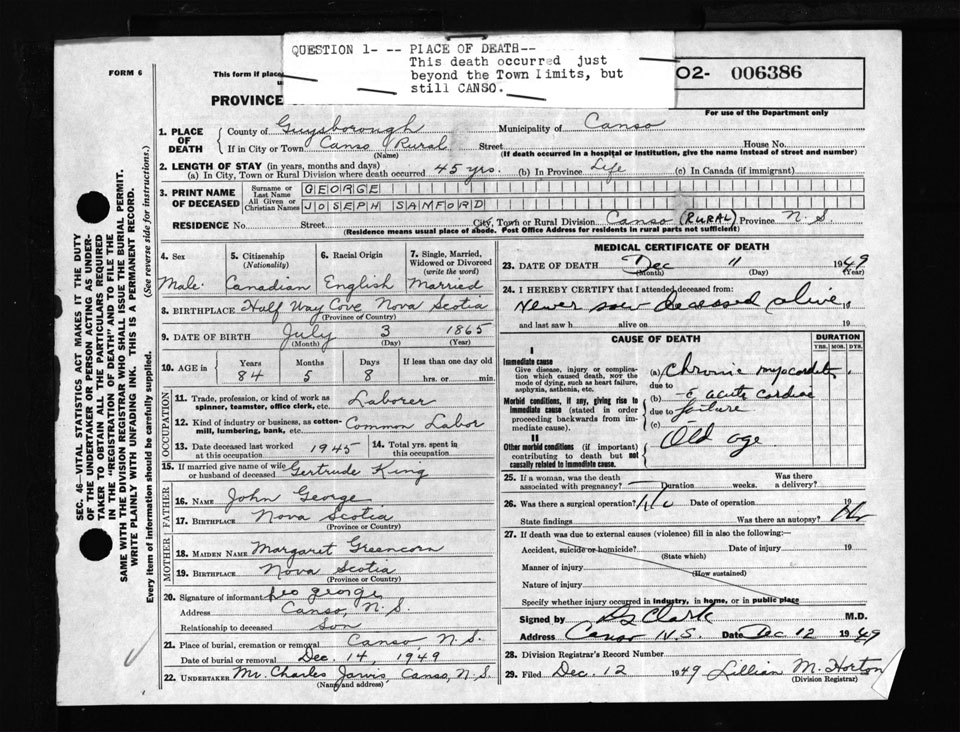 QUESTION 1- -- PLACE OF DEATH--
This death occurred just
beyond the Town Limits, but
still CANSO.
FORM 6
This form if place
PROVINCE
O2- 006386
For use of the Department only
1. PLACE OF DEATH
County of Guysborough Municipality of Canso
If in City or Town Canso Rural Street House No.
(Name) (If death occurred in a hospital or institution, give the name instead of street and number)
2. LENGTH OF STAY (in years, months and days)
(a) In City, Town or Rural Division where death occurred 45 yrs. (b) In Province Life (c) In Canada (if immigrant)
3. PRINT NAME OF DECEASED
Surname or Last Name GEORGE
All Given or Christian Names JOSEPH SAMFORD
RESIDENCE No. Street City, Town or Rural Division Canso (RURAL) Province N.S.
(Residence means usual place of abode. Post Office Address for residents in rural parts not sufficient)
4. Sex
Male
5. Citizenship (Nationality)
Canadian
6. Racial Origin
English
7. Single, Married, Widowed or Divorced (write the word)
Married
8. BIRTHPLACE Half Way Cove Nova Scotia
(Province or Country)
9. DATE OF BIRTH July 3 1865
(Month) (Day) (Year)
10. AGE in Years Months Days If less than one day old
84 5 8 hrs. or min.
OCCUPATION
11. Trade, profession, or kind of work as spinner, teamster, office clerk, etc. Laborer
12. Kind of industry or business, as cotton-mill, lumbering, bank, etc. Common Labor
13. Date deceased last worked at this occupation 1945
14. Total yrs. spent in this occupation
15. If married give name of wife or husband of deceased Gertrude King
FATHER
16. NAME John George
17. BIRTHPLACE Nova Scotia
(Province or Country)
MOTHER
18. MAIDEN NAME Margaret Greencorn
19. BIRTHPLACE Nova Scotia
(Province or Country)
20. Signature of informant Leo George
Address Canso, N.S.
Relationship to deceased Son
21. Place of burial, cremation or removal Canso N.S.
Date of burial or removal Dec. 14, 1949
22. UNDERTAKER Mr. Charles Jarvis, Canso, N.S.
(Name and address)
MEDICAL CERTIFICATE OF DEATH
23. DATE OF DEATH Dec 11 1949
(Month) (Day) (Year)
24. I HEREBY CERTIFY that I attended deceased from:
Never saw deceased alive 19
and last saw h alive on 19
CAUSE OF DEATH
DURATION
YRS. MOS. DYS.
I
Immediate cause
Give disease, injury or complication which caused death, NOT the mode of dying, such as heart failure, asphyxia, asthenia, etc.
(a) Chronic myocarditis
due to
Morbid conditions, if any, giving rise to immediate cause (stated in order proceeding backwards from immediate cause).
(b) c̄ acute cardiac
due to failure
(c)
II
Other morbid conditions (if important) contributing to death but not causally related to immediate cause.
Old age
25. If a woman, was the death associated with pregnancy? Duration weeks. Was there a delivery?
26. Was there a surgical operation? No Date of operation 19
State findings Was there an autopsy? No
27. If death was due to external causes (violence) fill in also the following:
Accident, suicide or homicide? Date of injury 19
(State which)
Manner of injury
(How sustained)
Nature of injury
Specify whether injury occurred in industry, in home, or in public place
Signed by Clark M.D.
Address Canso N.S. Date Dec 12 1949
28. Division Registrar's Record Number
29. Filed Dec. 12 1949 Lillian M. Horton
(Division Registrar)
SEC. 46—VITAL STATISTICS ACT MAKES IT THE DUTY
OF THE UNDERTAKER OR PERSON ACTING AS UNDER-
TAKER TO OBTAIN ALL THE PARTICULARS REQUIRED
IN THE "REGISTRATION OF DEATH" AND TO FILE THE
SAME WITH THE DIVISION REGISTRAR WHO SHALL ISSUE THE BURIAL PERMIT.
WRITE PLAINLY WITH UNFADING INK. THIS IS A PERMANENT RECORD.
Every item of information should be carefully supplied. (See reverse side for instructions.)